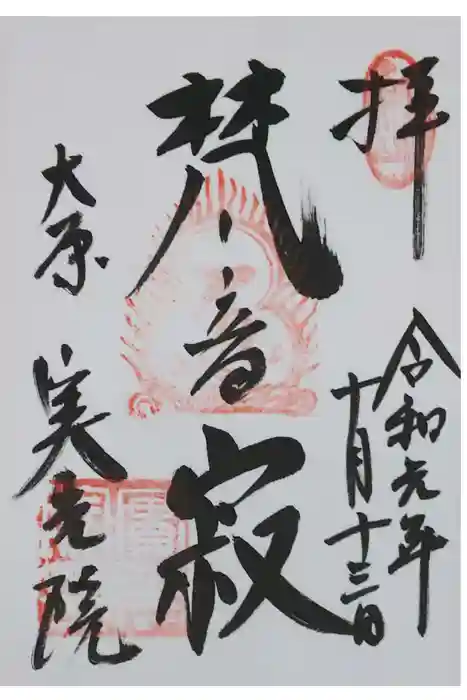 拝
令和元年
十月十三日
梵音寂
大原
実光院